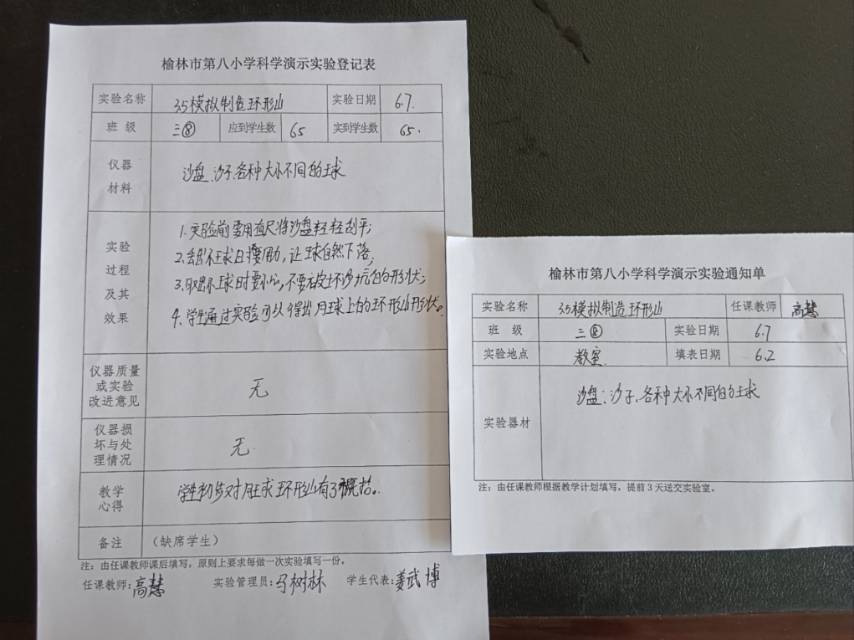 榆林市第八小学科学演示实验登记表
实验名称 35模拟制造环形山 实验日期 6.7.
班 级 三⑧ 应到学生数 65 实到学生数 65.
仪器
材料
沙盘、沙子、各种大小不同的球
实验
过程
及其
效果
1.实验前要用直尺将沙盘轻轻刮平;
让球自然下落;
3.取球时要小心,不要破坏沙坑的形状;
4.学生通过实验可以得出月球上的环形山形状。
仪器质量
或实验
改进意见
无
仪器损
坏与处
理情况
无.
教学
心得
学生初步对月球环形山有了概括。
备注 （缺席学生）
注：由任课教师课后填写，原则上要求每做一次实验填写一份。
任课教师:高慧 实验管理员:马树林 学生代表:姜武博
榆林市第八小学科学演示实验通知单
实验名称 35模拟制造环形山 任课教师 高慧
班 级 三⑧ 实验日期 6.7
实验地点 教室 填表日期 6.2
实验器材
沙盘、沙子、各种大小不同的球
注：由任课教师根据教学计划填写，提前3天送交实验室。